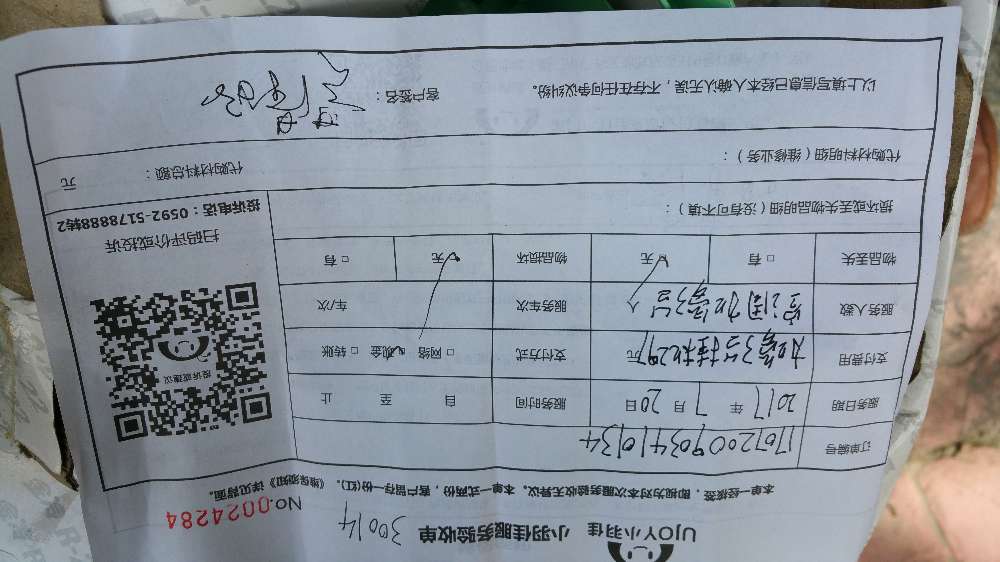 UJOY小羽佳 小羽佳服务验收单 30014
本单一经接签,即视为对本次服务验收无异议。本单一式两份,客户留存一份(红)。《维保须知》详见背面。
NO.0024284
订单编号 1707200903410134
服务日期 2017年7月20日 服务时间 自 至 止
支付费用 元 支付方式 □ 网络 □ 现金 □ 转账
服务人数 人 服务车次 车/次
物品丢失 □ 有 □ 无 物品损坏 □ 无 □ 有
投诉或建议
扫码评价或投诉
投诉电话:0592-5178888转2
损坏或丢失物品明细(没有可不填):
代购材料明细(维修业务): 代购材料总额: 元
以上填写信息已经本人确认无误,不存在任何争议纠纷。 客户签名: